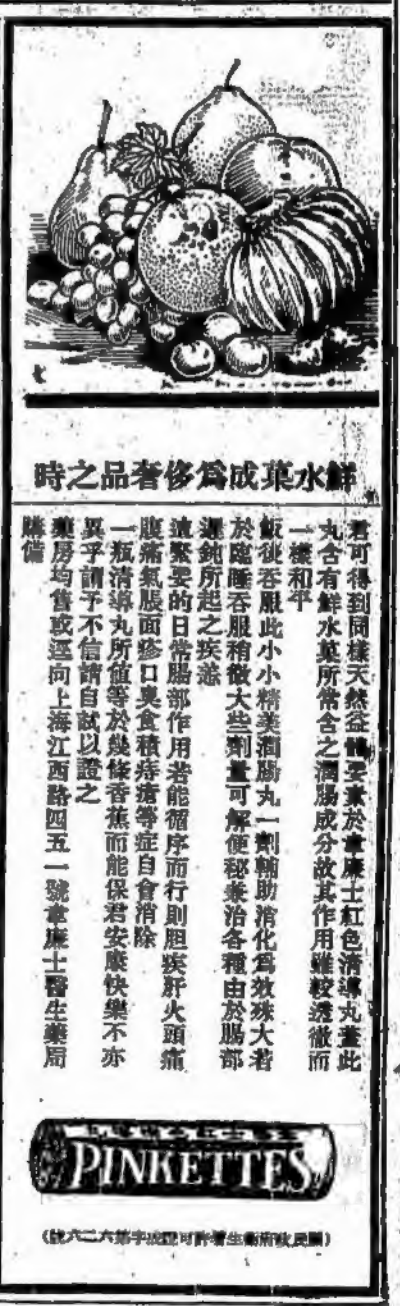 鮮水菓成爲侈奢品之時
君可得到同樣天然益體要素於韋廉士紅色清導丸蓋此
丸含有鮮水菓所常含之潤腸成分故其作用雖較透徹而
一樣和平
飯後吞服此小小精美潤腸丸一劑輔助消化爲效殊大若
於臨睡吞服稍微大些劑量可解便秘兼治各種由於腸部
遲鈍所起之疾恙
這緊要的日常腸部作用若能循序而行則胆疾肝火頭痛
腹痛氣脹面疹口臭食積痔瘡等症自會消除
一瓶清導丸所值等於幾條香蕉而能保君安康快樂不亦
異乎請予不信請自試以證之
藥房均售或逕向上海江西路四五一號韋廉士醫生藥局
購備
PINKETTES